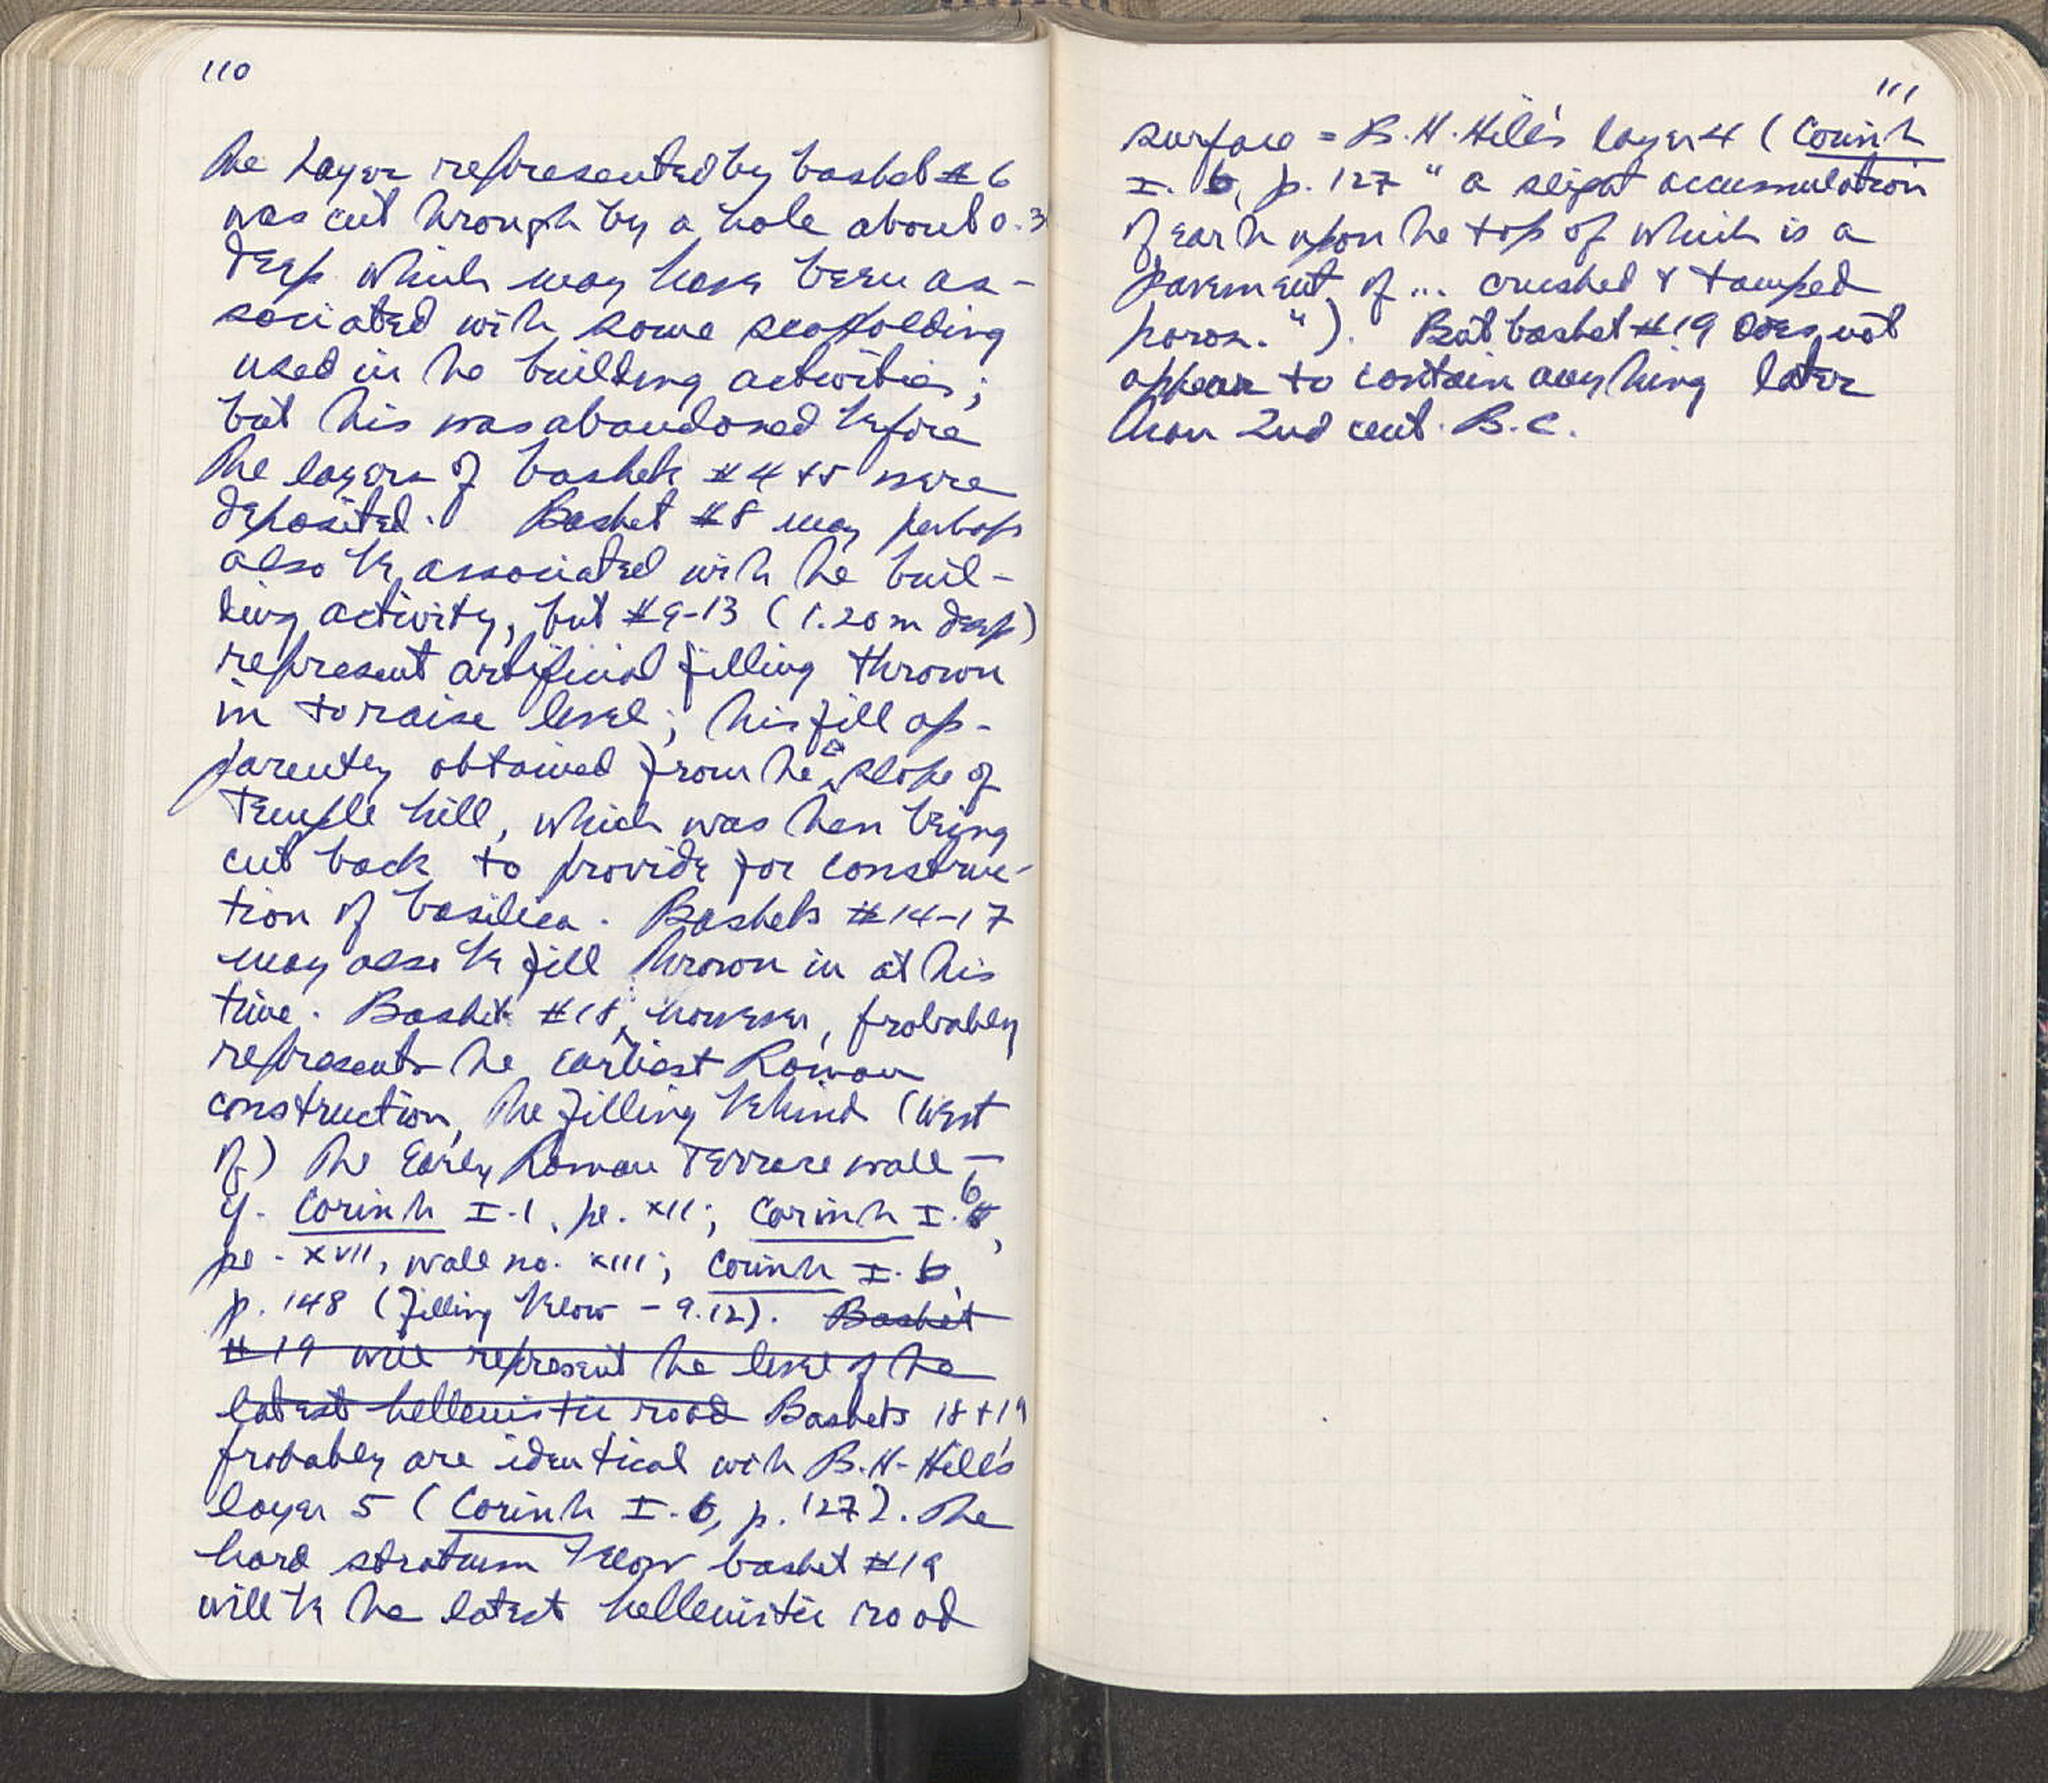 110
The Layer represented by basket #6
was cut through by a hole about 0.3
deep which may have been as-
sociated with some scaffolding
used in the building activities;
but this was abandoned before
the layers of baskets #4 + 5 were
deposited. Basket #8 may perhaps
also be associated with the buil-
ding activity, but #9-13 (1.20m deep)
represent artificial filling thrown
in to raise level; this fill ap-
parently obtained from the slope of
Temple hill, which was then being
cut back to provide for construc-
tion of basilica. Baskets #14-17
may also be fill thrown in at this
time. Basket #18, however, probably
represents the earliest Roman
construction, the filling behind (west
of) the Early Roman Terrace wall –
cf. Corinth I.1, pl. XII; Corinth I.6,
pl. XVII, wall no. XIII; Corinth I.6,
p. 148 (filling below – 9.12). Basket
#19 will represent the level of the
latest hellenistic road Baskets 18 + 19
probably are identical with B.H. Hill's
layer 5 (Corinth I.6, p. 127). The
hard stratum below basket #19
will be the latest hellenistic road
111
surface = B.H. Hill's layer 4 (Corinth
I.6, p. 127 "a slight accumulation
of earth upon the top of which is a
pavement of ... crushed & tamped
poros."). But basket #19 does not
appear to contain anything later
than 2nd cent. B.C.